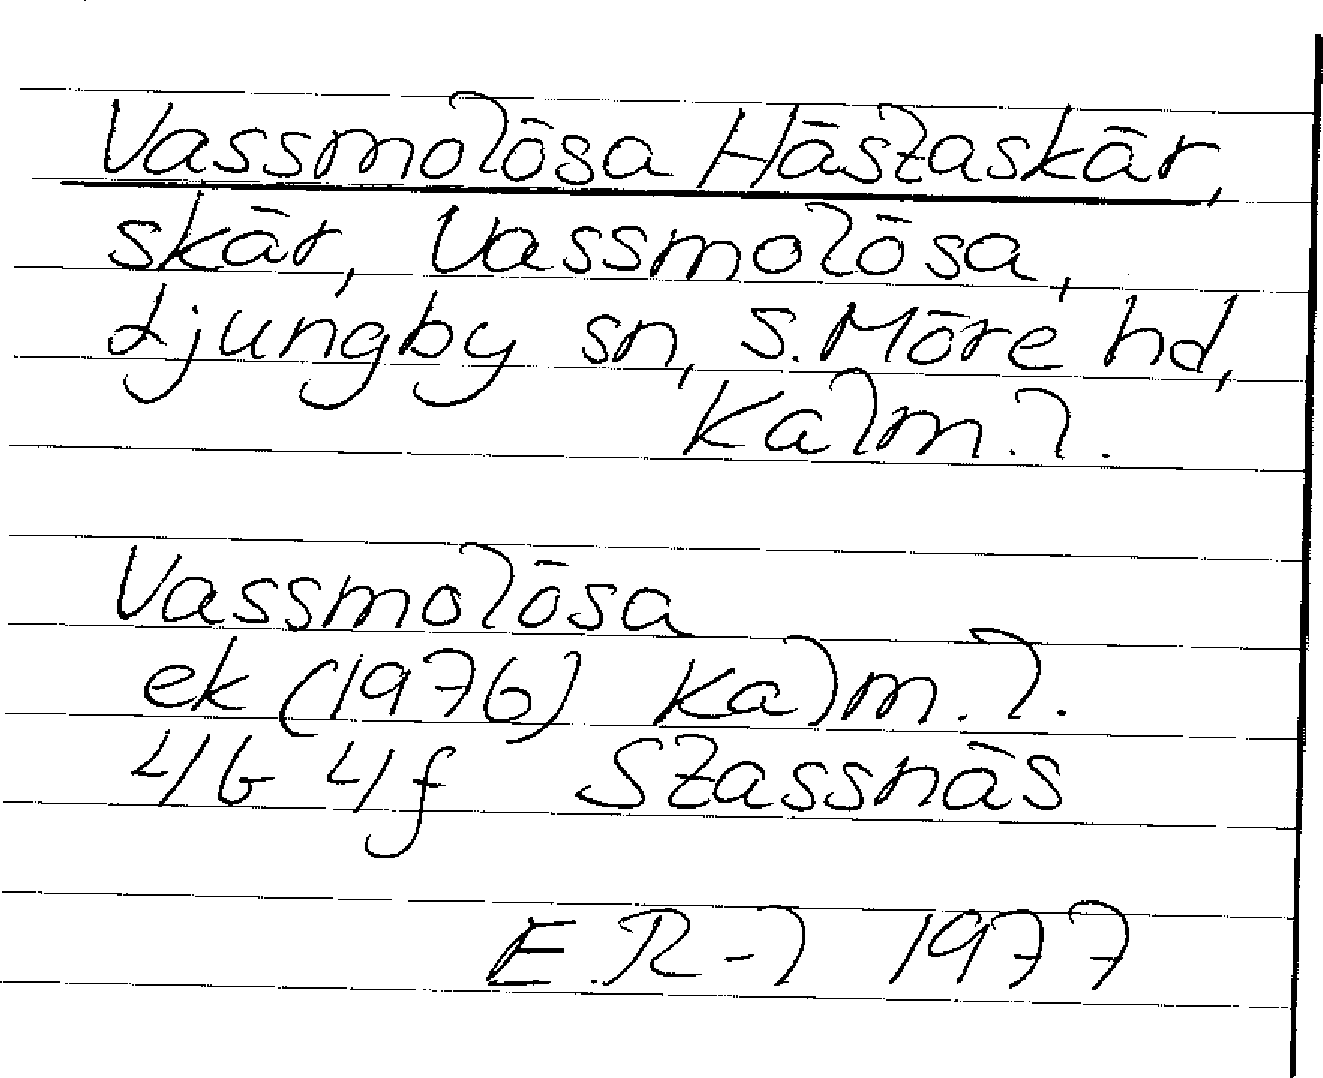 Vassmolösa Hästaskär,
skär, Vassmolösa,
Ljungby sn, S. Möre hd,
Kalm. l.
Vassmolösa
ek (1976) Kalm. l.
4G 4f Stassnäs
E. R-l 1977